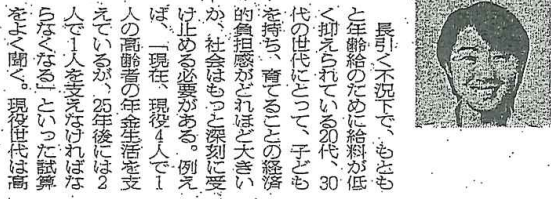 長引く不況下で、もとも
と年齢給のために給料が低
く抑えられている20代、30
代の世代にとって、子ども
を持ち、育てることの経済
的負担感がどれほど大きい
か、社会はもっと深刻に受
け止める必要がある。例え
ば、「現在、現役4人で1
人の高齢者の年金生活を支
えているが、25年後には2
人で1人を支えなければな
らなくなる」といった試算
をよく聞く。現役世代は高